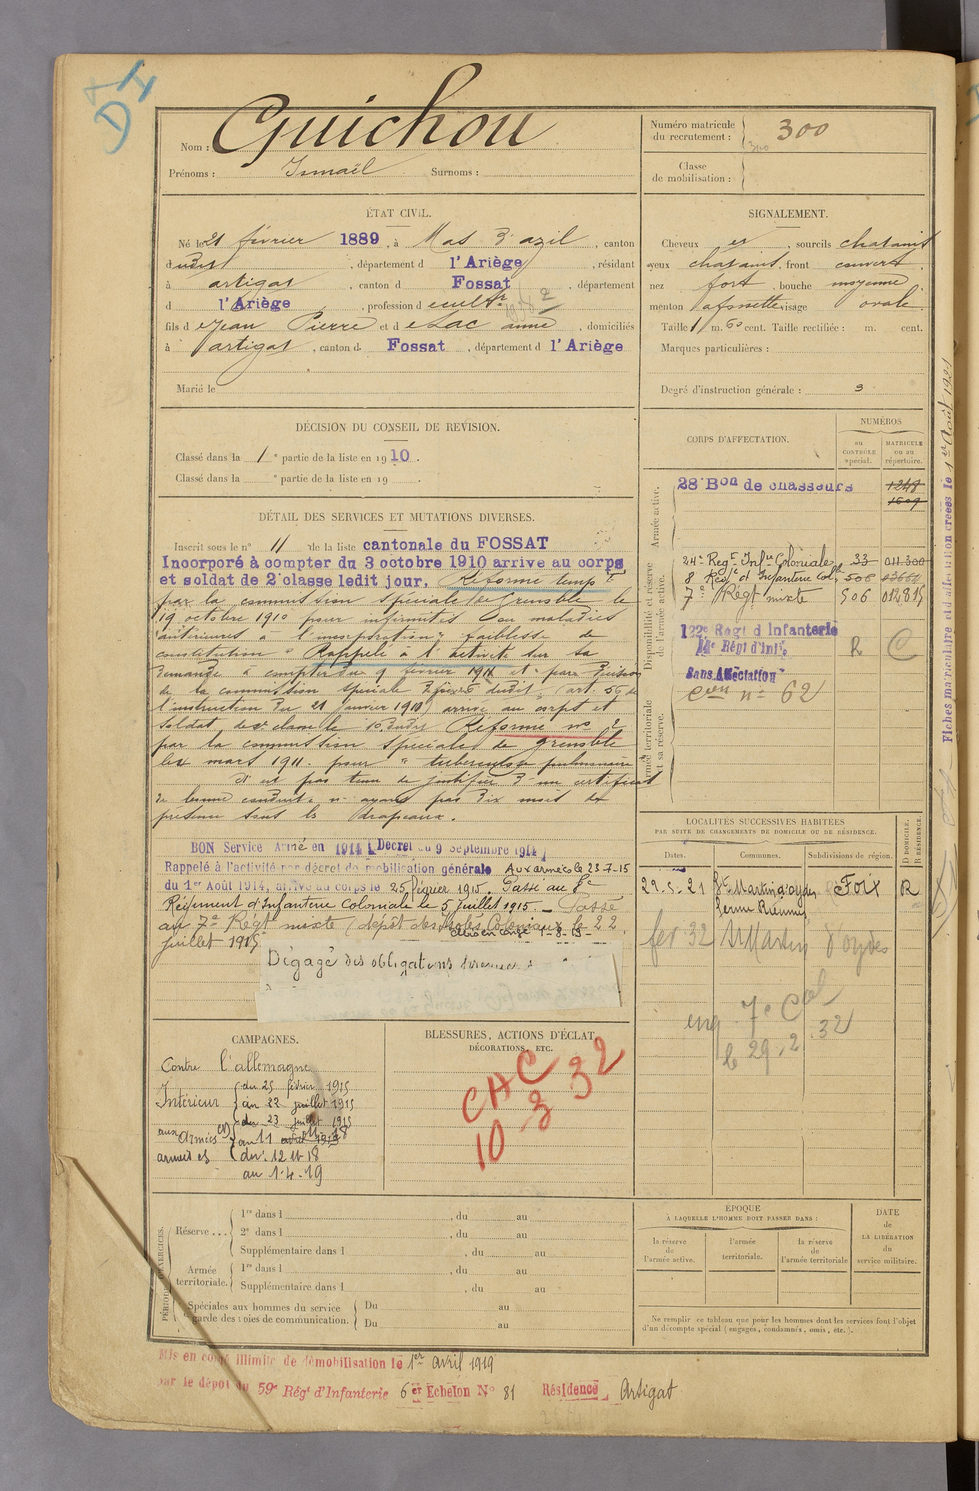 Nom : Guichou
Prénoms : Ismaël Surnoms :
Numéro matricule du recrutement : 300
300
Classe de mobilisation :
ÉTAT CIVIL.
Né le 21 février 1889, à Mas d'azil, canton
dudit, département d l'Ariège, résidant
à artigat, canton d Fossat, département
d l'Ariège, profession de cultr
fils de Jean Pierre et de Lac anne, domiciliés
à artigat, canton d Fossat, département d l'Ariège
Marié le
SIGNALEMENT.
Cheveux et, sourcils chatains
yeux chatains, front couvert
nez fort, bouche moyenne
menton à fossette visage ovale
Taille 1 m. 60 cent. Taille rectifiée : m. cent.
Marques particulières :
Degré d'instruction générale : 3
DÉCISION DU CONSEIL DE REVISION.
Classé dans la 1e partie de la liste en 1910.
Classé dans la e partie de la liste en 19
DÉTAIL DES SERVICES ET MUTATIONS DIVERSES.
Inscrit sous le n° 11 de la liste cantonale du FOSSAT
Incorporé à compter du 3 octobre 1910 arrivé au corps
et soldat de 2e classe ledit jour. Réformé tempre
par la commission spéciale de Grenoble le
19 octobre 1910 pour infirmités ou maladies
antérieures à l'incorporation " faiblesse de
constitution " Rappelé à l'activité sur sa
demande à compter du 9 février 1911 et par décision
de la commission spéciale dudit (art. 56 de
l'instruction du 21 janvier 1910) arrivé au corps et
soldat de 2e classe le 10 dudit. Réformé n° 2
par la commission spéciale de Grenoble
le mars 1911. pour " tuberculose pulmonaire
N'est pas tenu de justifier d'un certificat
de bonne conduite n'ayant pas dix mois de
présence sous les drapeaux.
BON Service Armé en 1914 (Décret du 9 septembre 1914)
Rappelé à l'activité par décret de mobilisation générale Aux armées le 23-7-15
du 1er Août 1914, arrivé au corps le 25 février 1915. Passé au 8e
Régiment d'Infanterie Coloniale le 5 juillet 1915 — Passé
au 7e Régt mixte (dépôt des isolés Coloniaux le 22
juillet 1915
Dégagé des obligations
CORPS D'AFFECTATION.
NUMÉROS
au CONTROLE spécial.
MATRICULE ou au répertoire.
Armée active.
28e Bon de chasseurs
1248
1609
Disponibilité et réserve de l'armée active.
24e Regt Infie Coloniale 33 011.300
8 Regt d'Infanterie Colle 506
7e Régt mixte 506 012815
122e Regt d'Infanterie
14e Régt d'Infie R C
Sans Affectation
n° 62
Armée territoriale et sa réserve.
Fiches matriculaire et d'affectation créées le 1er Août 1921
LOCALITÉS SUCCESSIVES HABITÉES
PAR SUITE DE CHANGEMENTS DE DOMICILE OU DE RÉSIDENCE.
Dates. Communes. Subdivisions de région. D DOMICILE. R RÉSIDENCE.
29.5-21 St Martin d'oydes Foix R
fer 32 St Martin d'oydes
eng. 7e Col
le 29.2.32
CAMPAGNES.
Contre l'allemagne
Intérieur du 25 février 1915
au 22 juillet 1915
aux Armées du 23 juillet 1915
au 11
du 12 11 18
au 1-4-19
BLESSURES, ACTIONS D'ÉCLAT,
DÉCORATIONS, ETC.
CAC
10 3 32
PÉRIODES D'EXERCICES.
Réserve ... 1re dans l , du au
2e dans l , du au
Supplémentaire dans l , du au
Armée territoriale. 1re dans l , du au
Supplémentaire dans l , du au
Spéciales aux hommes du service de garde des voies de communication. Du au
Du au
ÉPOQUE
À LAQUELLE L'HOMME DOIT PASSER DANS :
la réserve de l'armée active.
l'armée territoriale.
la réserve de l'armée territoriale
DATE de LA LIBÉRATION du service militaire.
Ne remplir ce tableau que pour les hommes dont les services font l'objet
d'un décompte spécial (engagés, condamnés, omis, etc.).
Mis en congé illimité de démobilisation le 1er avril 1919
par le dépôt du 59e Régt d'Infanterie 6e Echelon N° 81 Résidence Artigat